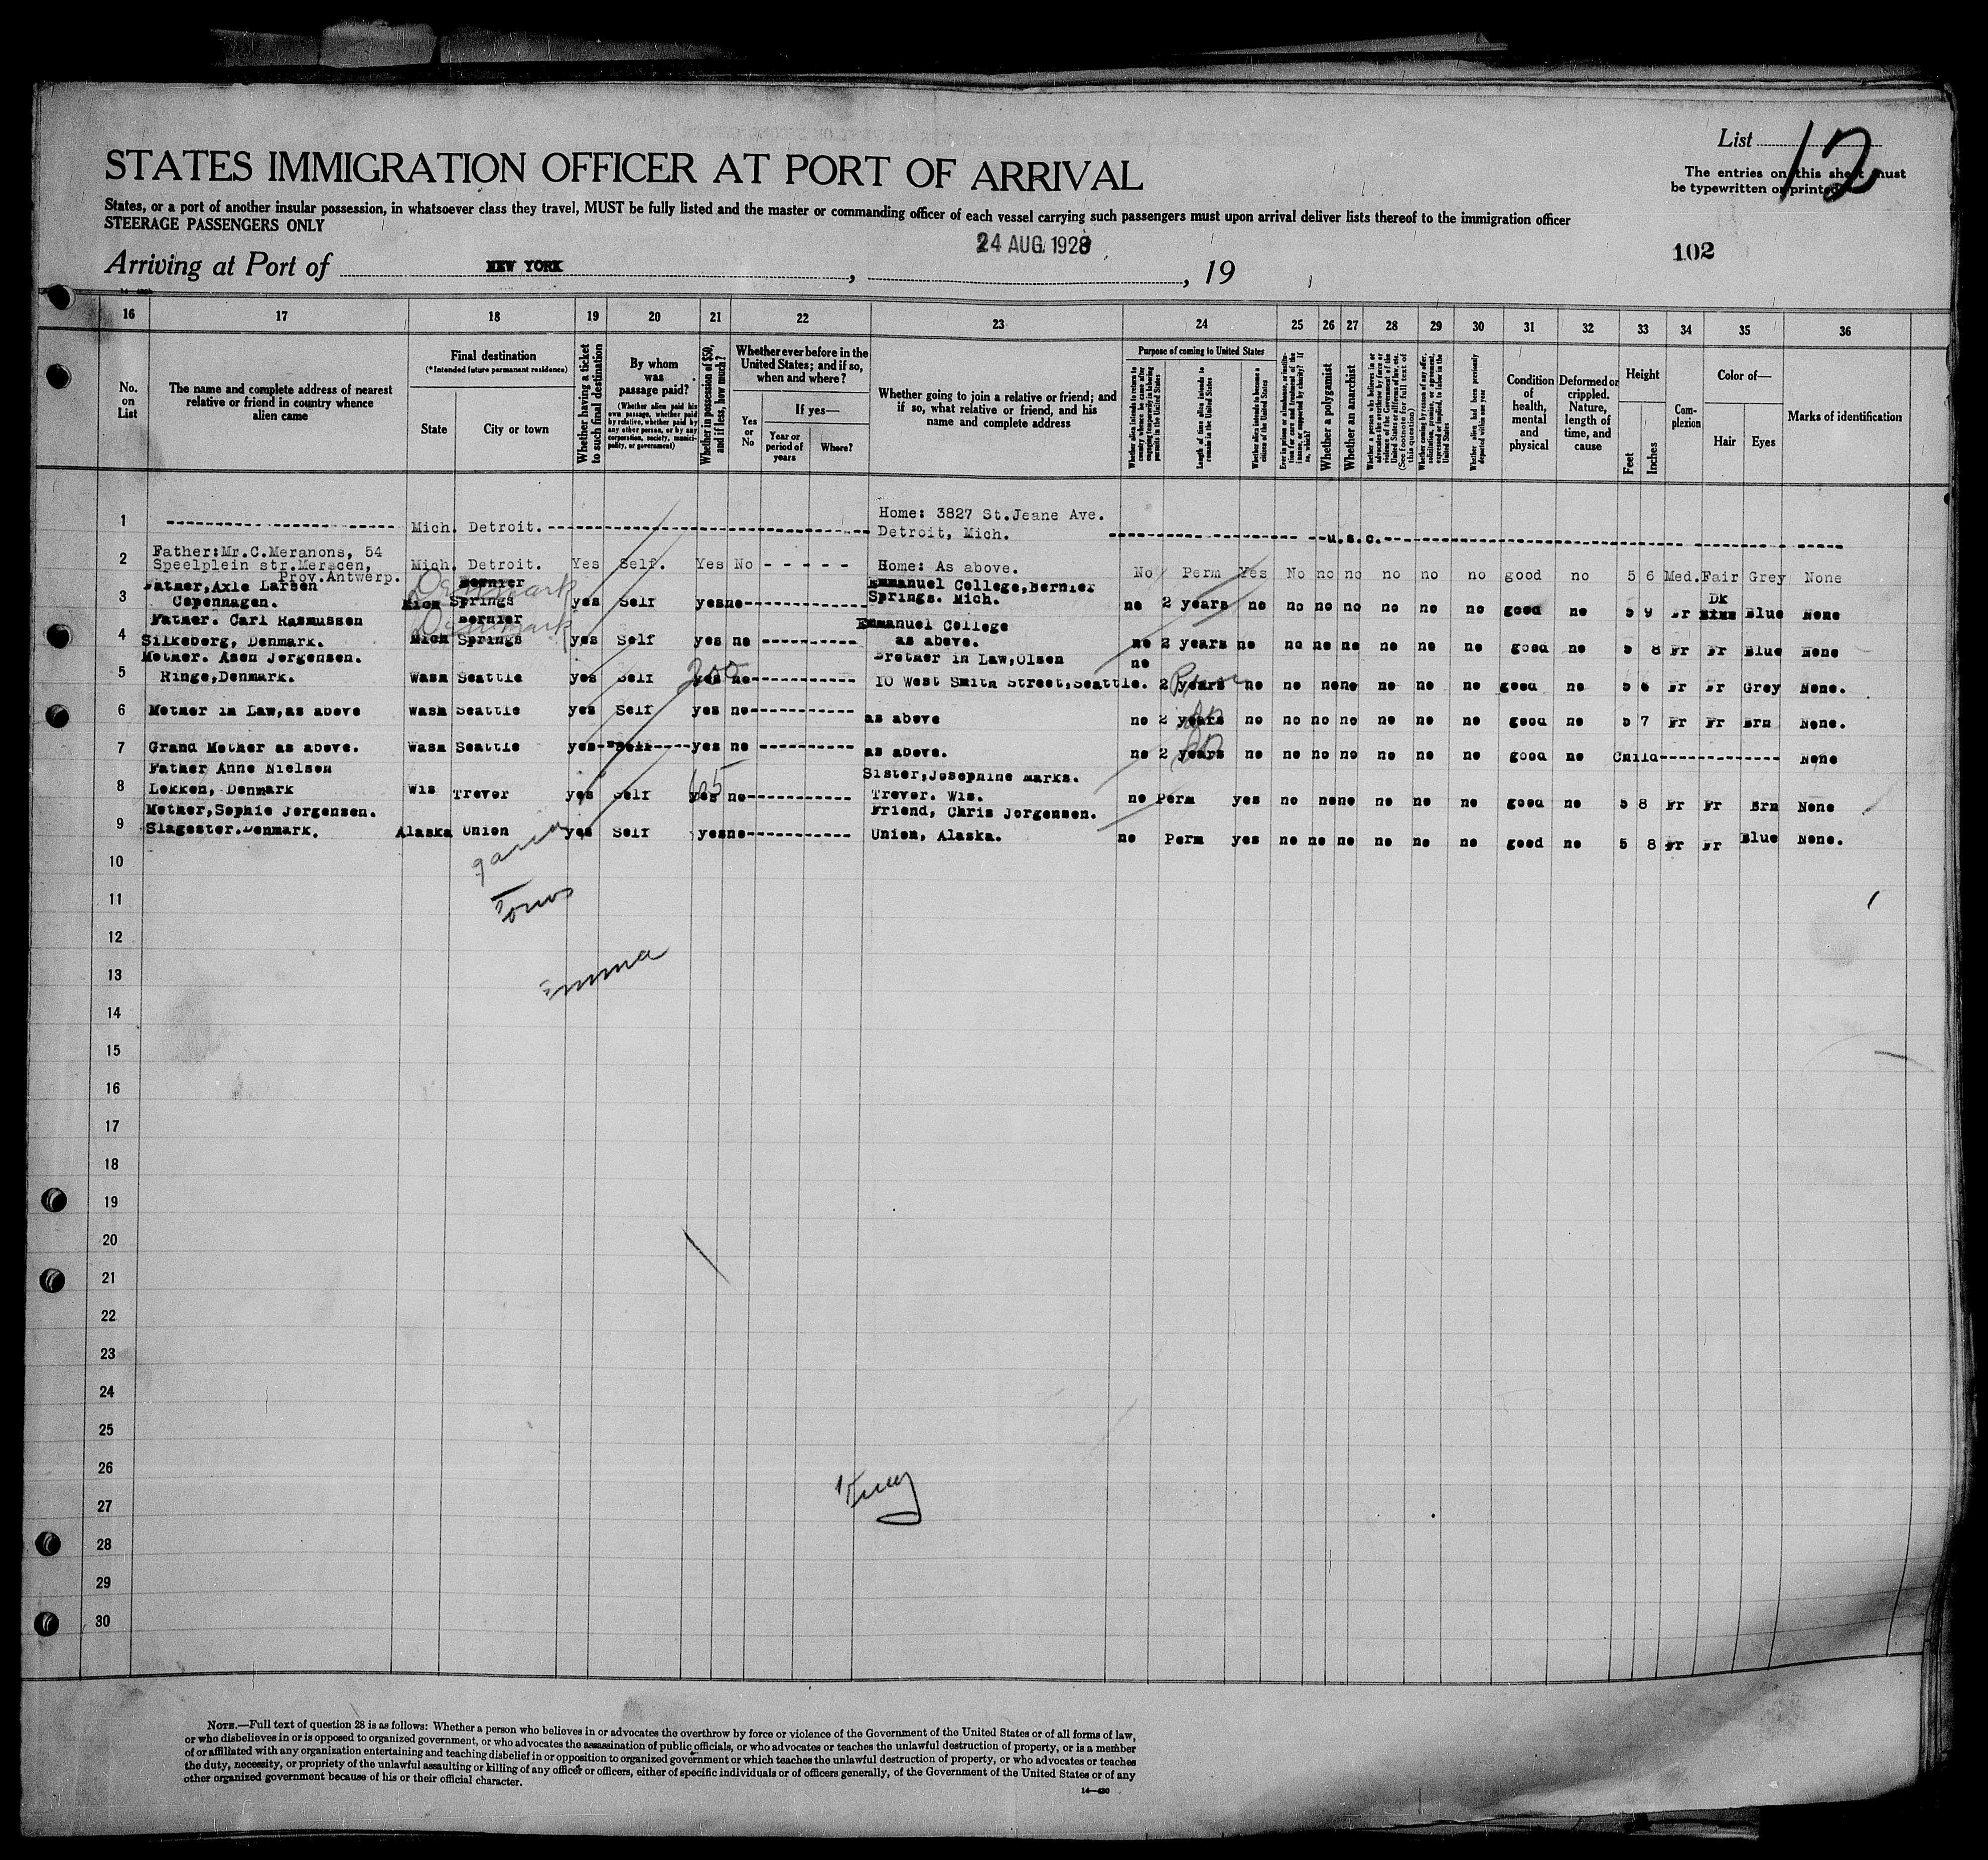 List 12
STATES IMMIGRATION OFFICER AT PORT OF ARRIVAL
The entries on this sheet must
be typewritten or printed
States, or a port of another insular possession, in whatsoever class they travel, MUST be fully listed and the master or commanding officer of each vessel carrying such passengers must upon arrival deliver lists thereof to the immigration officer
STEERAGE PASSENGERS ONLY
24 AUG 1928
102
Arriving at Port of NEW YORK , , 19
16 17 18 19 20 21 22 23 24 25 26 27 28 29 30 31 32 33 34 35 36
No. on List
The name and complete address of nearest relative or friend in country whence alien came
Final destination
(*Intended future permanent residence)
State
City or town
Whether having a ticket to such final destination
By whom was passage paid?
(Whether alien paid his own passage, whether paid by relative, whether paid by any other person, or by any corporation, society, municipality, or government)
Whether in possession of $50, and if less, how much?
Whether ever before in the United States; and if so, when and where?
Yes or No
If yes—
Year or period of years
Where?
Whether going to join a relative or friend; and if so, what relative or friend, and his name and complete address
Purpose of coming to United States
Whether alien intends to return to country whence he came after engaging temporarily in laboring pursuits in the United States
Length of time alien intends to remain in the United States
Whether alien intends to become a citizen of the United States
Ever in prison or almshouse, or institution for care and treatment of the insane, or supported by charity? If so, which?
Whether a polygamist
Whether an anarchist
Whether a person who believes in or advocates the overthrow by force or violence of the Government of the United States or all forms of law, etc. (See footnote for full text of this question)
Whether coming by reason of any offer, solicitation, promise, or agreement, expressed or implied, to labor in the United States
Whether alien had been previously deported within one year
Condition of health, mental and physical
Deformed or crippled. Nature, length of time, and cause
Height
Feet
Inches
Complexion
Color of—
Hair
Eyes
Marks of identification
1 Mich. Detroit. Home: 3827 St.Jeane Ave.
Detroit, Mich. u.s.c.
2 Father:Mr.C.Meranons, 54
Speelplein str.Merscen,
Prov.Antwerp. Mich. Detroit. Yes Self. Yes No - - - - - Home: As above. No Perm Yes No no no no no no good no 5 6 Med. Fair Grey None
3 Father,Axle Larsen
Copenhagen. Denmark Mich Bernier
Springs yes Self yes no Emmanuel College,Bernier
Springs. Mich. no 2 years no no no no no no no good no 5 9 Fr Dk Blue None
4 Father. Carl Rasmussen
Silkeborg, Denmark. Denmark Mich Bernier
Springs yes Self yes no Emmanuel College
as above. no 2 years no no no no no no no good no 5 8 Fr Fr Blue None
5 Mother. Asen Jorgensen.
Ringe,Denmark. Wash Seattle yes Self yes 200 no Brother in Law,Olsen
10 West Smith Street,Seattle. no 2 years Perm no no no no no no no good no 5 6 Fr Fr Grey None.
6 Mother in Law,as above Wash Seattle yes Self yes no as above no 2 years do no no no no no no no good no 5 7 Fr Fr Brn None.
7 Grand Mother as above. Wash Seattle yes Self yes no as above. no 2 years do no no no no no no no good no Child None
8 Father Anne Nielsen
Lokken, Denmark Wis Trever yes Self yes no Sister,Josephine Marks.
Trever. Wis. no Perm yes no no no no no no good no 5 8 Fr Fr Brn None
9 Mother,Sophie Jorgensen.
Slagester.Denmark. Alaska Union yes Self yes no Friend, Chris Jorgensen.
Union, Alaska. no Perm yes no no no no no no good no 5 8 Fr Fr Blue None.
10
11
12
13 Emma
14
15
16
17
18
19
20
21
22
23
24
25
26
27
28
29
30
NOTE.—Full text of question 28 is as follows: Whether a person who believes in or advocates the overthrow by force or violence of the Government of the United States or of all forms of law,
or who disbelieves in or is opposed to organized government, or who advocates the assassination of public officials, or who advocates or teaches the unlawful destruction of property, or is a member
of or affiliated with any organization entertaining and teaching disbelief in or opposition to organized government or which teaches the unlawful destruction of property, or who advocates or teaches
the duty, necessity, or propriety of the unlawful assaulting or killing of any officer or officers, either of specific individuals or of officers generally, of the Government of the United States or of any
other organized government because of his or their official character.
14—430